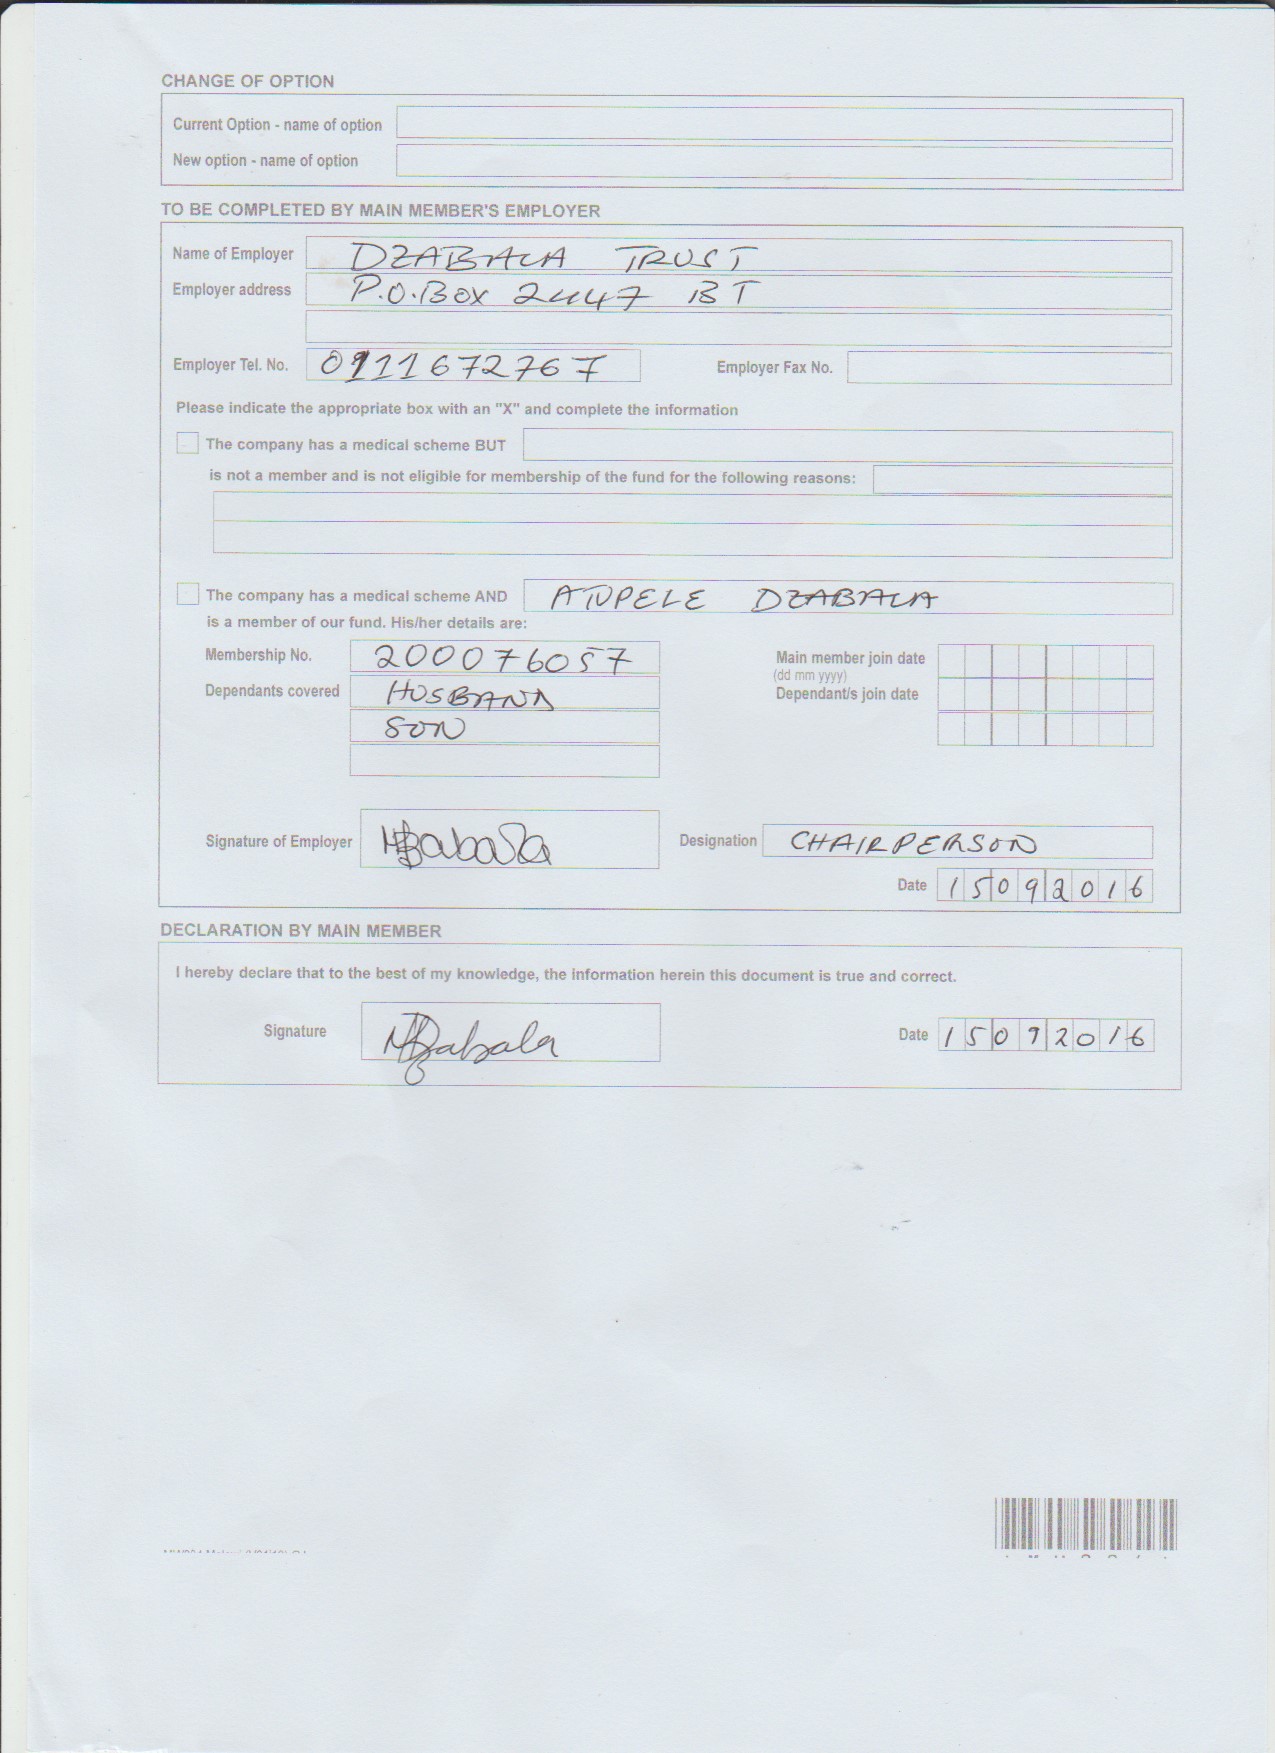 CHANGE OF OPTION
Current Option - name of option
New option - name of option
TO BE COMPLETED BY MAIN MEMBER'S EMPLOYER
Name of Employer DZABALA TRUST
Employer address P.O.BOX 2447 BT
Employer Tel. No. 0111672767 Employer Fax No.
Please indicate the appropriate box with an "X" and complete the information
The company has a medical scheme BUT
is not a member and is not eligible for membership of the fund for the following reasons:
The company has a medical scheme AND ATUPELE DZABALA
is a member of our fund. His/her details are:
Membership No. 200076057 Main member join date
(dd mm yyyy)
Dependants covered HUSBAND Dependant/s join date
SON
Signature of Employer Designation CHAIRPERSON
Date 15092016
DECLARATION BY MAIN MEMBER
I hereby declare that to the best of my knowledge, the information herein this document is true and correct.
Signature Date 15092016